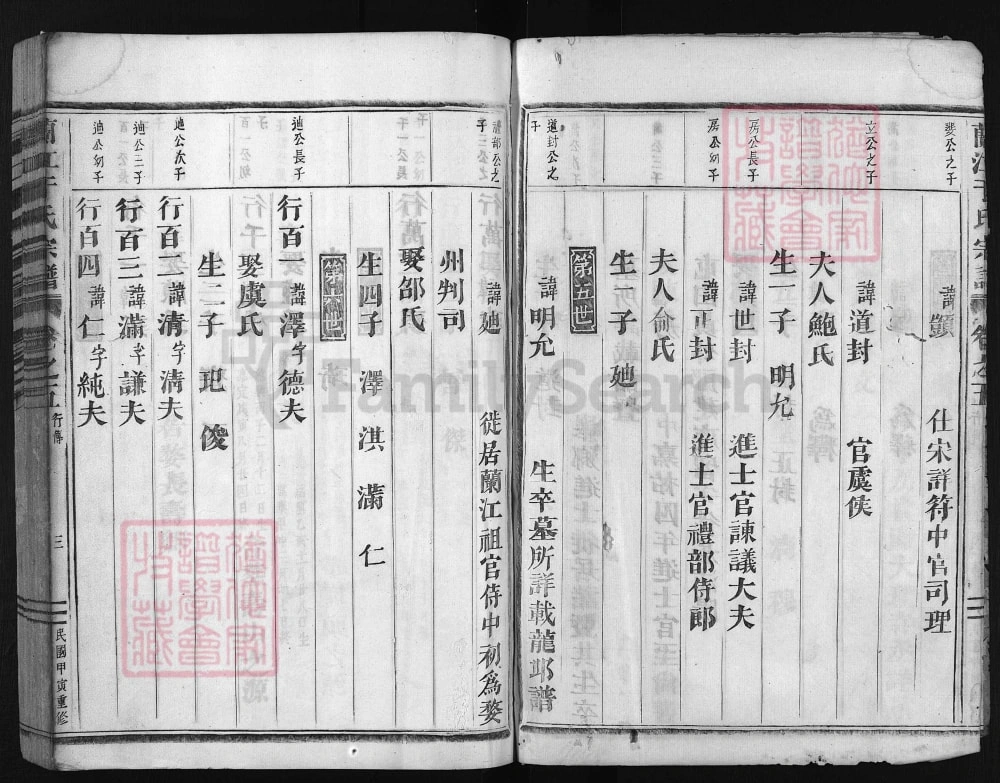 蘭江于氏宗譜 卷之五
斐公之子 諱 仕宋祥符中官司理
立公之子 諱道封 官虞侯
夫人鮑氏
生一子 明允
房公長子 諱世封 進士官諫議大夫
房公幼子 諱正封 進士官禮部侍郎
夫人俞氏
生一子 廸
第五世
道封公之子 諱明允 生卒墓所詳載龍邱譜
公之子 諱廸 徙居蘭江祖官侍中初為婺
州判司
娶邵氏
生四子 澤 淇 滿 仁
第六世
廸公長子 行百一 諱澤 字德夫
娶虞氏
生二子 玘 俊
廸公次子 行百二 諱清 字清夫
廸公三子 行百三 諱滿 字謙夫
廸公幼子 行百四 諱仁 字純夫
蘭江于氏宗譜 卷之五 行傳 三 民國甲寅重修
譜學會
收藏
譜學會
收藏
FamilySearch